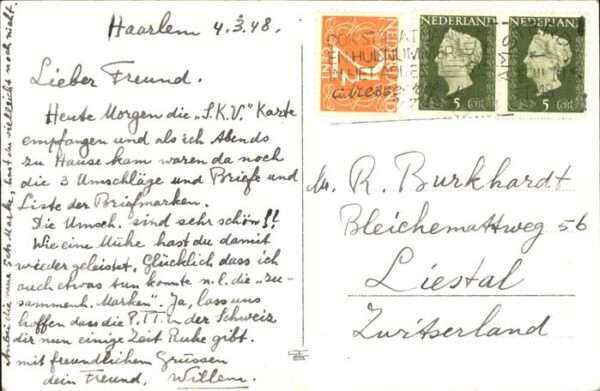 Haarlem 4.3.48.
Lieber Freund.
Heute Morgen die "S.K.V." Karte
empfangen und als ich Abends
zu Hause kam waren da noch
die 3 Umschläge und Briefe und
Liste der Briefmarken.
Die Umsch. sind sehr schön!!
Wie eine Mühe hast du damit
wieder geleistet. Glücklich dass ich
auch etwas tun konnte n.l. die "zu-
sammenh. Marken". Ja, lass uns
hoffen dass die P.TT in der Schweiz
dir nun einige Zeit Ruhe gibt.
mit freundlichem Grüssen
dein Freund, Willem.
die neue Marke, hast du vielleicht noch nicht.
NEDERLAND
5 Cent
NEDERLAND
5 Cent
HUISNUMMER
R. Burkhardt
Bleichemattweg 56
Liestal
Zwitserland